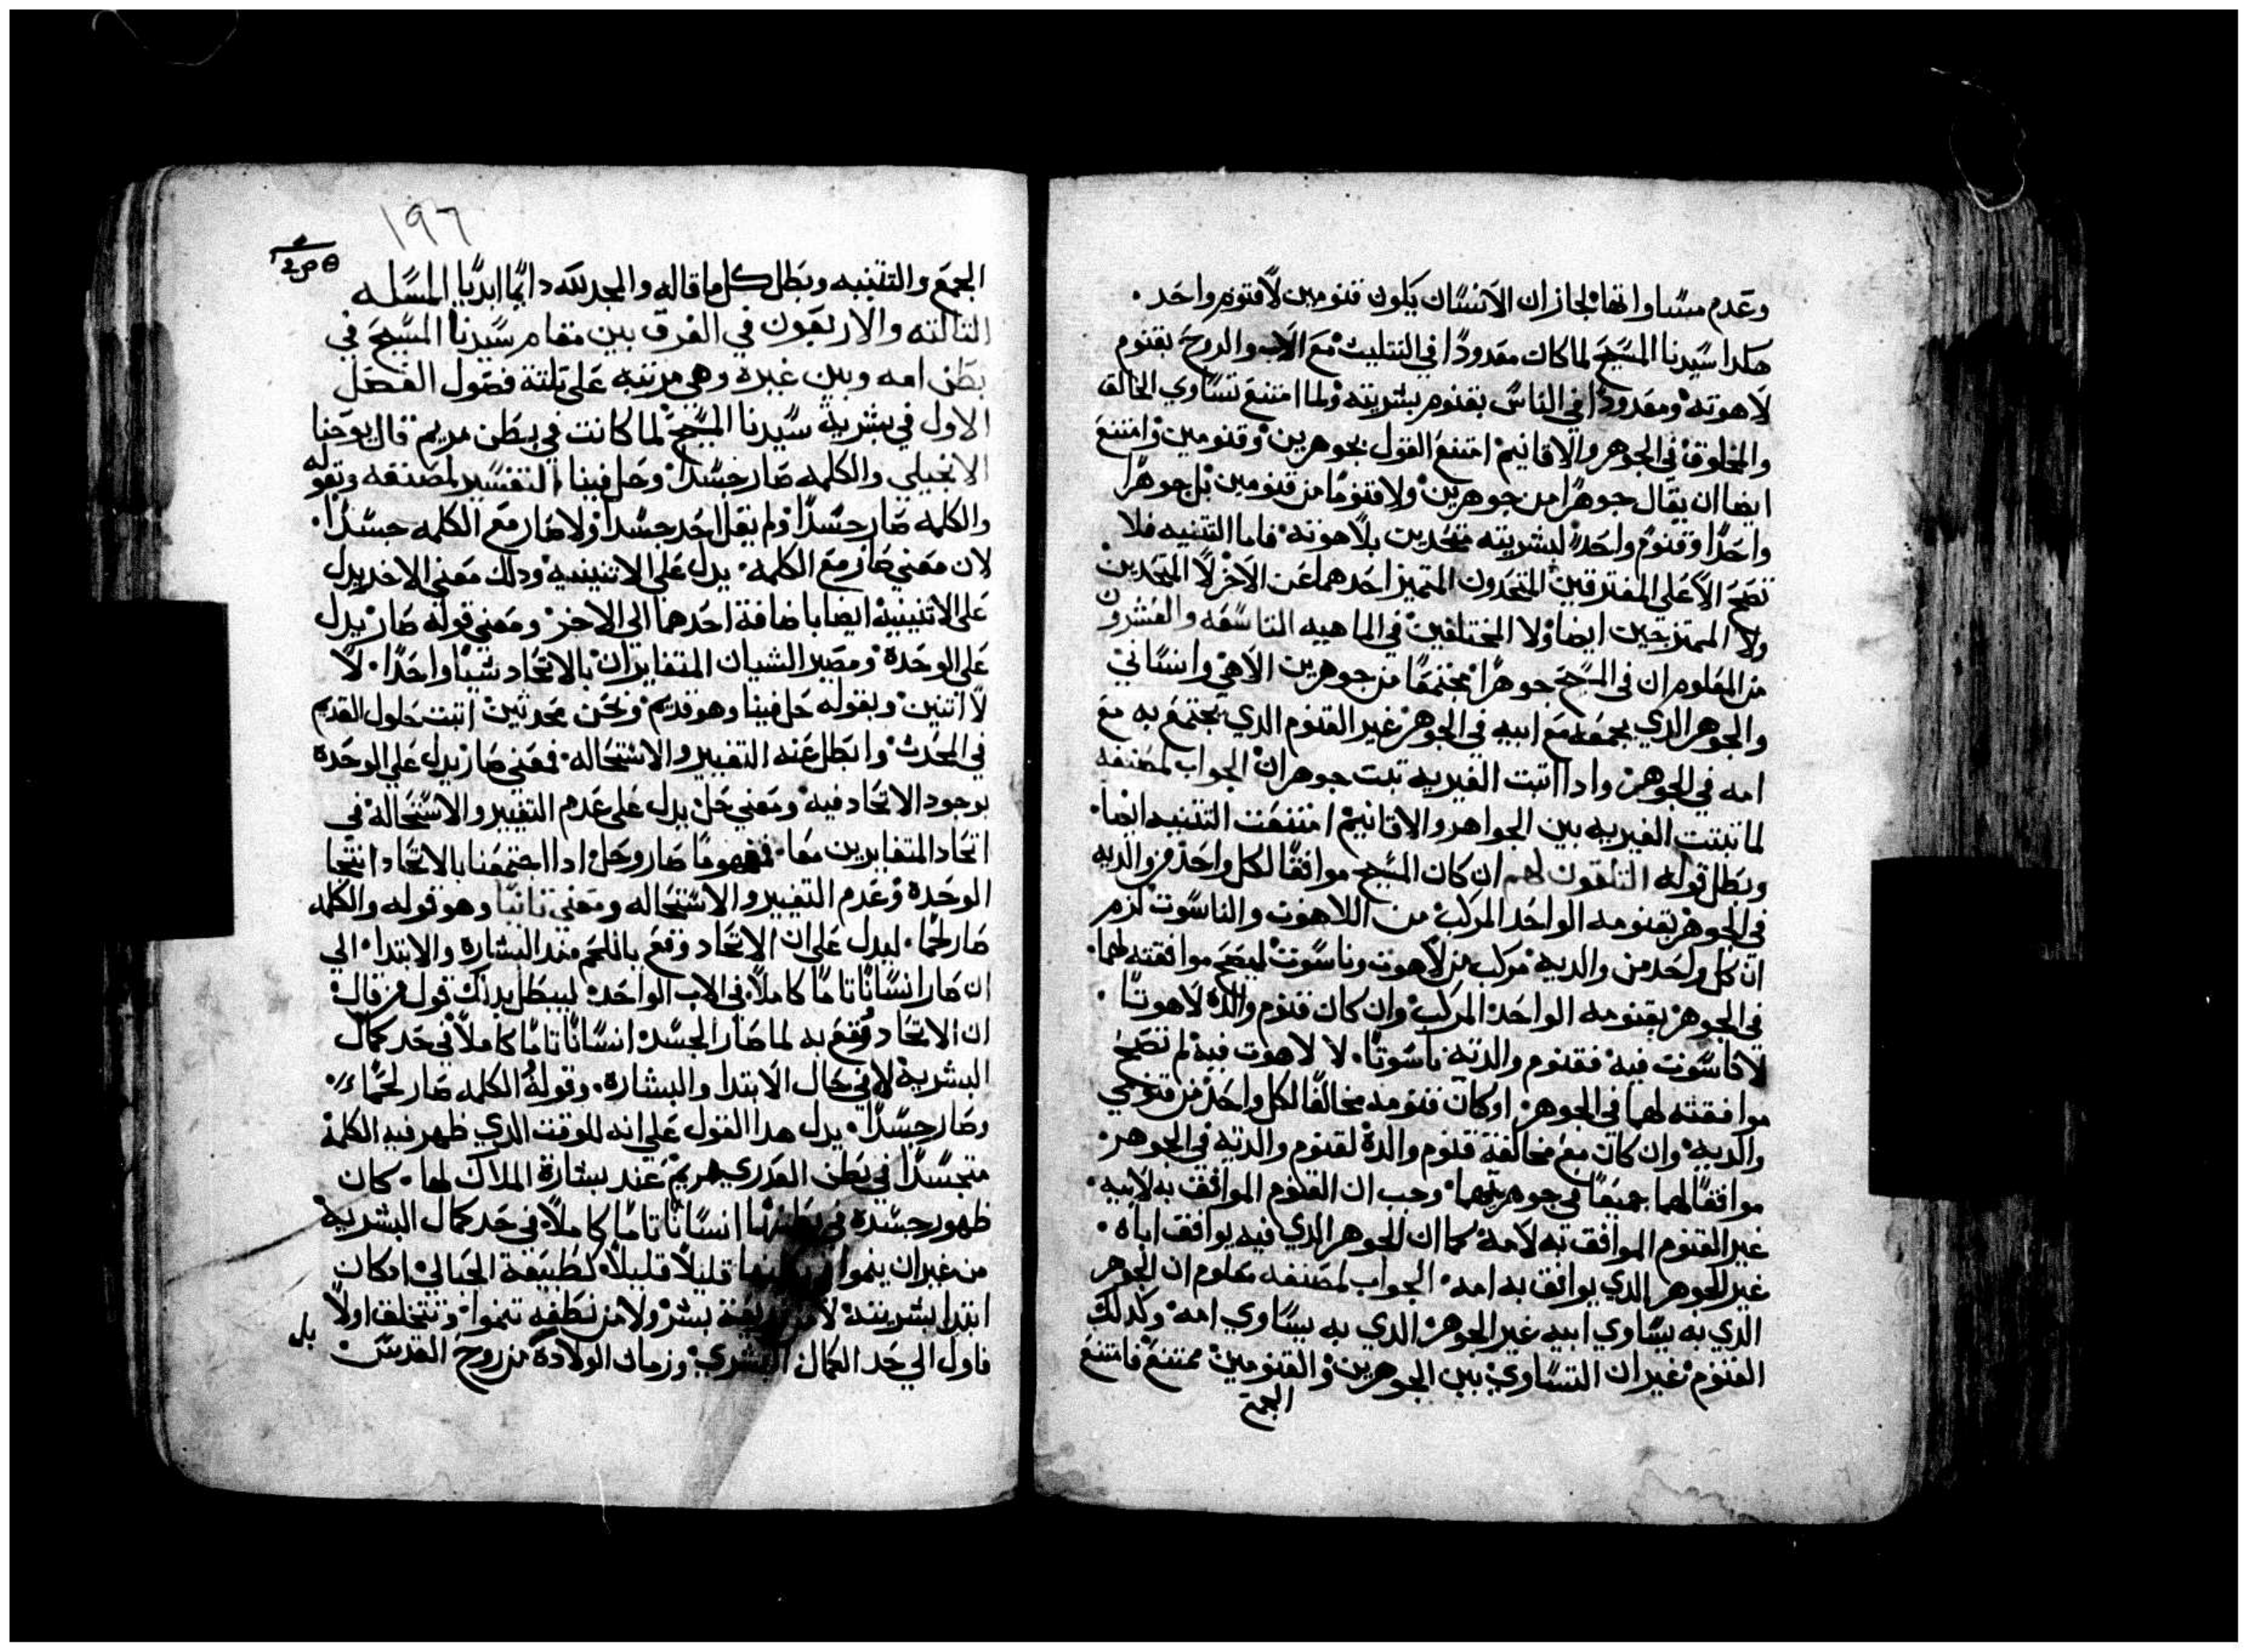 وعدم مساواتها لجاز ان الانسان يكون قنومين لا قنوم واحد.
هكدا سيدنا المسيح لما كان معدودا في التتليت مع الاب والروح بقنوم
لاهوته ومعدودا في الناس بقنوم بشريته ولما امتنع تساوي الخالق
والمخلوق في الجوهر والاقانيم امتنع القول بجوهرين وقنومين وامتنع
ايضا ان يقال جوهرا من جوهرين ولا قنوما من قنومين بل جوهرا
واحدا وقنوم واحد لبشريته متحدين بلاهوته فاما التتنيه فلا
تصح الا على المفترقين المتحدون المتميز احدهما عن الاخر لا المتحدين
ولا الممتزجين ايضا ولا المختلفين في الماهيه التاسعه والعشرون
من المعلوم ان في المسيح جوهرا مجتمعا من جوهرين الاهي وانساني
والجوهر الدي يجمعه مع ابيه في الجوهر غير القنوم الدي يجتمع به مع
امه في الجوهر وادا اتبت الغيريه تبت جوهران الجواب لمصنفه
لما تبتت الغيريه بين الجواهر والاقانيم امتنعت التتنيه ايضا.
وبطل قوله التلتون لهم ان كان المسيح موافقا لكل واحد من والديه
في الجوهر بقنومه الواحد المركب من اللاهوت والناسوت لزم
ان كل واحد من والديه مركب من لاهوت وناسوت ليصح موافقته لهما.
في الجوهر بقنومه الواحد المركب وان كان قنوم والده لاهوتا.
لا ناسوت فيه فقنوم والدته ناسوتا. لا لاهوت فيه لم تصح
موافقته لهما في الجوهر او كان قنومه مخالفا لكل واحد من قنومي
والديه وان كان مع مخالفة قنوم والدة لقنوم والدته في الجوهر.
موافقا لهما جميعا في جوهريتهما وجب ان القنوم الموافق به لابيه.
غير القنوم الموافق به لامه كما ان الجوهر الدي فيه يوافق اباه.
غير الجوهر الدي يوافق به امه. الجواب لمصنفه معلوم ان الجوهر
الدي به يساوي ابيه غير الجوهر الدي به يساوي امه وكدلك
القنوم غير ان التساوي بين الجوهرين والقنومين ممتنع فامتنع
الجمع
١٩٦
الجمع والتتنيه وبطل كل ما قاله والمجد لله دايما ابديا المسله
التالته والاربعون في الفرق بين مقام سيدنا المسيح في
بطن امه وبين غيره وهي مرتبه على تلتة فصول الفصل
الاول في بشرية سيدنا المسيح لما كانت في بطن مريم قال يوحنا
الانجيلي والكلمه صار جسدا وحل فينا التفسير لمصنفه وقوله
والكلمه صار جسدا ولم يقل اخد جسدا ولا صار مع الكلمه جسدا.
لان معني صار مع الكلمه. يدل على الاتنينيه ودلك معني الاخد يدل
على الاتنينيه ايضا باضافة احدهما الى الاخر ومعني قوله صار يدل
على الوحدة ومصير الشيان المتغايران بالاتحاد شيا واحدا. لا
لا اتنين وبقوله حل فينا وهو قديم ونحن محدتين اتبت حلول القديم
في المحدت وابطل عنه التغيير والاستحاله. فمعني صار يدل على الوحدة
بوجود الاتحاد فيه ومعني حل يدل على عدم التغيير والاستحاله في
اتحاد المتغايرين معا. فمفهوما صار وحل ادا اجتمعنا بالاتحاد انتجا
الوحدة وعدم التغيير والاستحاله ومعني تانيا وهو قوله والكلمه
صار لحما. ليدل على ان الاتحاد وقع باللحم مند البشارة والابتدا. الي
ان صار انسانا تاما كاملا في الاب الواحد. ليبطل بدلك قول من قال
ان الاتحاد وقع به لما صار الجسد انسانا تاما كاملا في حد كمال
البشرية لا في حال الابتدا والبشارة. وقوله الكلمه صار لحما
وصار جسدا. يدل هدا القول على انه للوقت الدي ظهر فيه الكلمة
متجسدا في بطن العدري مريم عند بشارة الملاك لها. كان
ظهور جسده في بطنها انسانا تاما كاملا في حد كمال البشريه
من غير ان ينموا قليلا قليلا كطبيعة الحبالي امكان
ابتدا بشريته بشر ولا من نطفه تنموا وتتخلق اولا
فاول الي حد الكمال البشري وزمان الولادة من روح القدس
بل